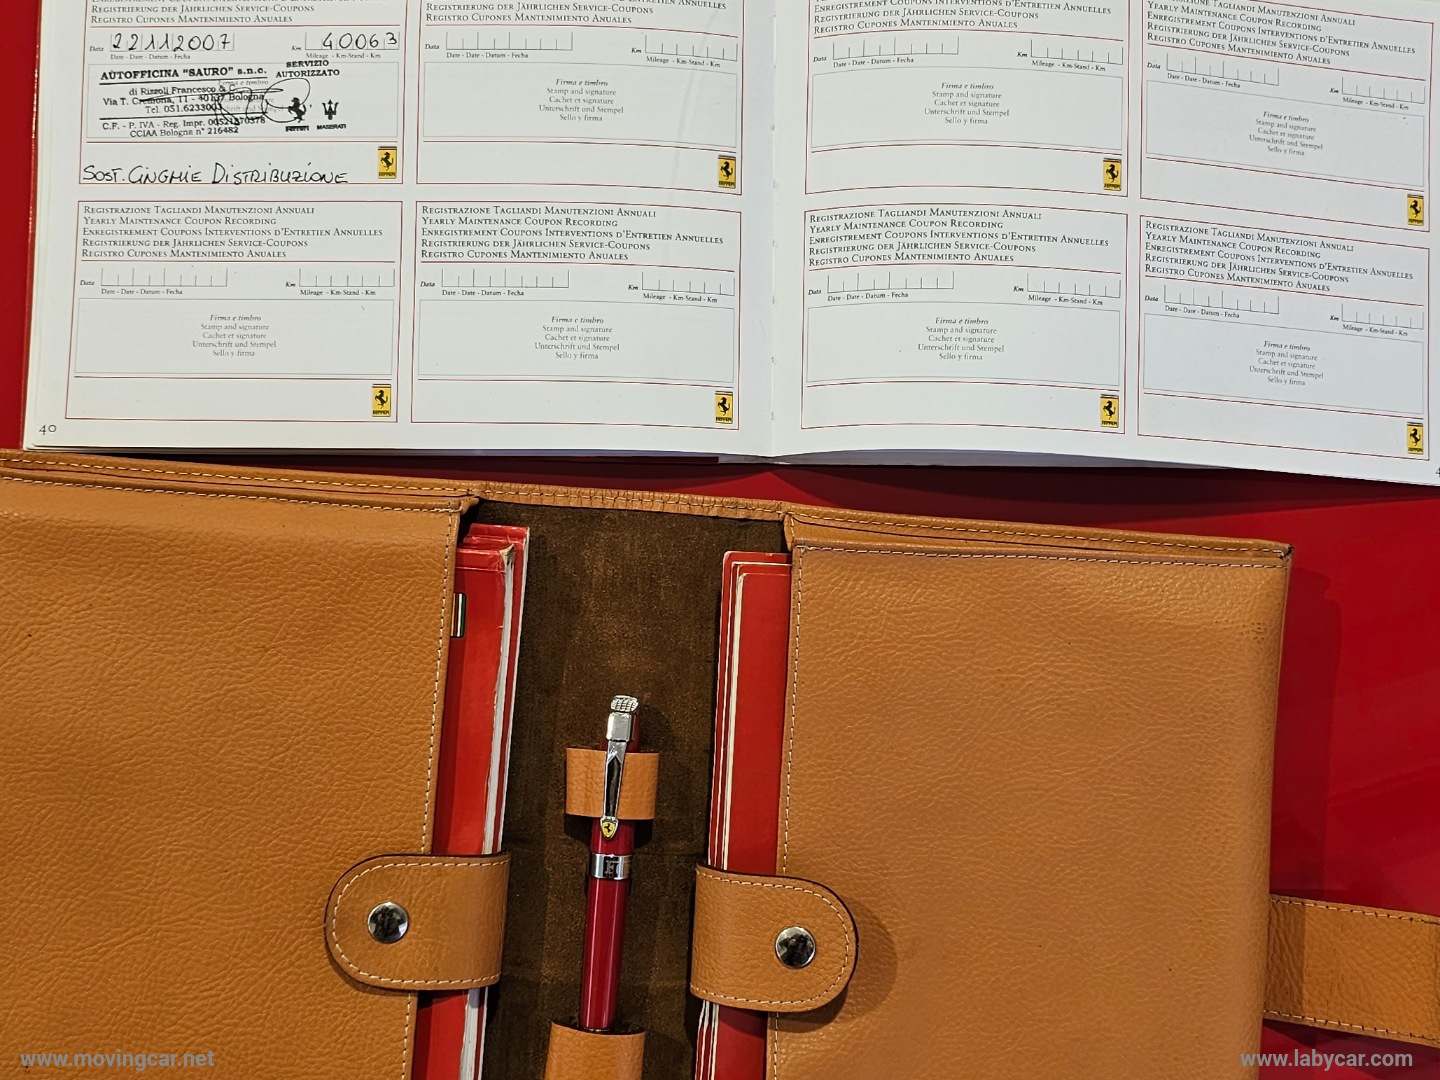 Registrierung der Jährlichen Service-Coupons
Registro Cupones Mantenimiento Anuales
Data 22112007 Km 40063
Date - Date - Datum - Fecha Mileage - Km-Stand - Km
AUTOFFICINA "SAURO" s.n.c.
di Rizzoli Francesco & C.
Via T. Cremona, 11 - 40137 Bologna
Tel. 051.6233001
C.F. - P. IVA - Reg. Impr. 00521870378
CCIAA Bologna n° 216482
SERVIZIO
AUTORIZZATO
Ferrari MASERATI
SOST. CINGHIE DISTRIBUZIONE
Ferrari
Registrierung der Jährlichen Service-Coupons
Registro Cupones Mantenimiento Anuales
Data Km
Date - Date - Datum - Fecha Mileage - Km-Stand - Km
Firma e timbro
Stamp and signature
Cachet et signature
Unterschrift und Stempel
Sello y firma
Ferrari
Enregistrement Coupons Interventions d'Entretien Annuelles
Registrierung der Jährlichen Service-Coupons
Registro Cupones Mantenimiento Anuales
Data Km
Date - Date - Datum - Fecha Mileage - Km-Stand - Km
Firma e timbro
Stamp and signature
Cachet et signature
Unterschrift und Stempel
Sello y firma
Ferrari
Registrazione Tagliandi Manutenzioni Annuali
Yearly Maintenance Coupon Recording
Enregistrement Coupons Interventions d'Entretien Annuelles
Registrierung der Jährlichen Service-Coupons
Registro Cupones Mantenimiento Anuales
Data Km
Date - Date - Datum - Fecha Mileage - Km-Stand - Km
Firma e timbro
Stamp and signature
Cachet et signature
Unterschrift und Stempel
Sello y firma
Ferrari
Registrazione Tagliandi Manutenzioni Annuali
Yearly Maintenance Coupon Recording
Enregistrement Coupons Interventions d'Entretien Annuelles
Registrierung der Jährlichen Service-Coupons
Registro Cupones Mantenimiento Anuales
Data Km
Date - Date - Datum - Fecha Mileage - Km-Stand - Km
Firma e timbro
Stamp and signature
Cachet et signature
Unterschrift und Stempel
Sello y firma
Ferrari
Registrazione Tagliandi Manutenzioni Annuali
Yearly Maintenance Coupon Recording
Enregistrement Coupons Interventions d'Entretien Annuelles
Registrierung der Jährlichen Service-Coupons
Registro Cupones Mantenimiento Anuales
Data Km
Date - Date - Datum - Fecha Mileage - Km-Stand - Km
Firma e timbro
Stamp and signature
Cachet et signature
Unterschrift und Stempel
Sello y firma
Ferrari
Registrazione Tagliandi Manutenzioni Annuali
Yearly Maintenance Coupon Recording
Enregistrement Coupons Interventions d'Entretien Annuelles
Registrierung der Jährlichen Service-Coupons
Registro Cupones Mantenimiento Anuales
Data Km
Date - Date - Datum - Fecha Mileage - Km-Stand - Km
Firma e timbro
Stamp and signature
Cachet et signature
Unterschrift und Stempel
Sello y firma
Ferrari
Registrazione Tagliandi Manutenzioni Annuali
Yearly Maintenance Coupon Recording
Enregistrement Coupons Interventions d'Entretien Annuelles
Registrierung der Jährlichen Service-Coupons
Registro Cupones Mantenimiento Anuales
Data Km
Date - Date - Datum - Fecha Mileage - Km-Stand - Km
Firma e timbro
Stamp and signature
Cachet et signature
Unterschrift und Stempel
Sello y firma
Ferrari
40
www.movingcar.net
www.labycar.com